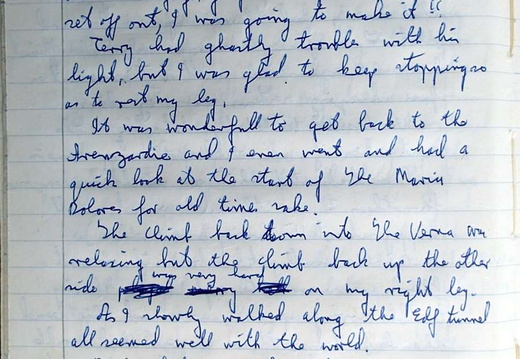 set off out, I was going to make it !!
Terry had ghastly trouble with his
light, but I was glad to keep stopping so
as to rest my leg.
It was wonderfull to get back to the
and I even went and had a
quick look at the start of The Maria
Dolores for old times sake.
The climb back down into The Verna was
relaxing but the climb back up the other
side was very hard on my right leg.
As I slowly walked along the Edf tunnel
all seemed well with the world.